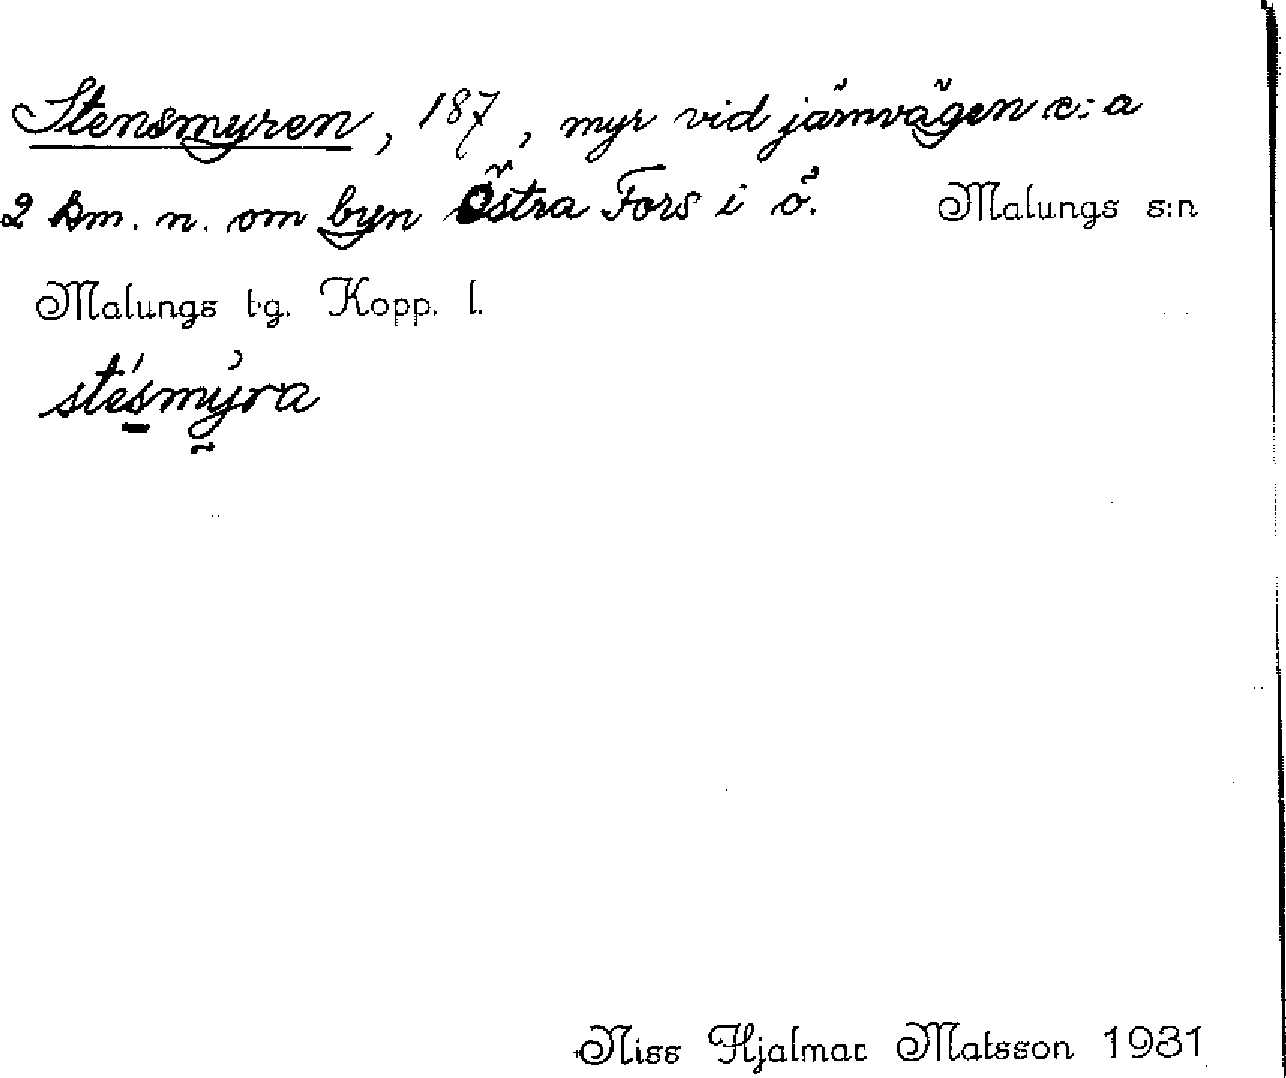 Stensmyren, 187, myr vid järnvägen c:a
2 km. n. om byn Östra Fors i ö. Malungs s:n
Malungs t.g. Kopp. l.
stésmýra
Niss Hjalmar Matsson 1931